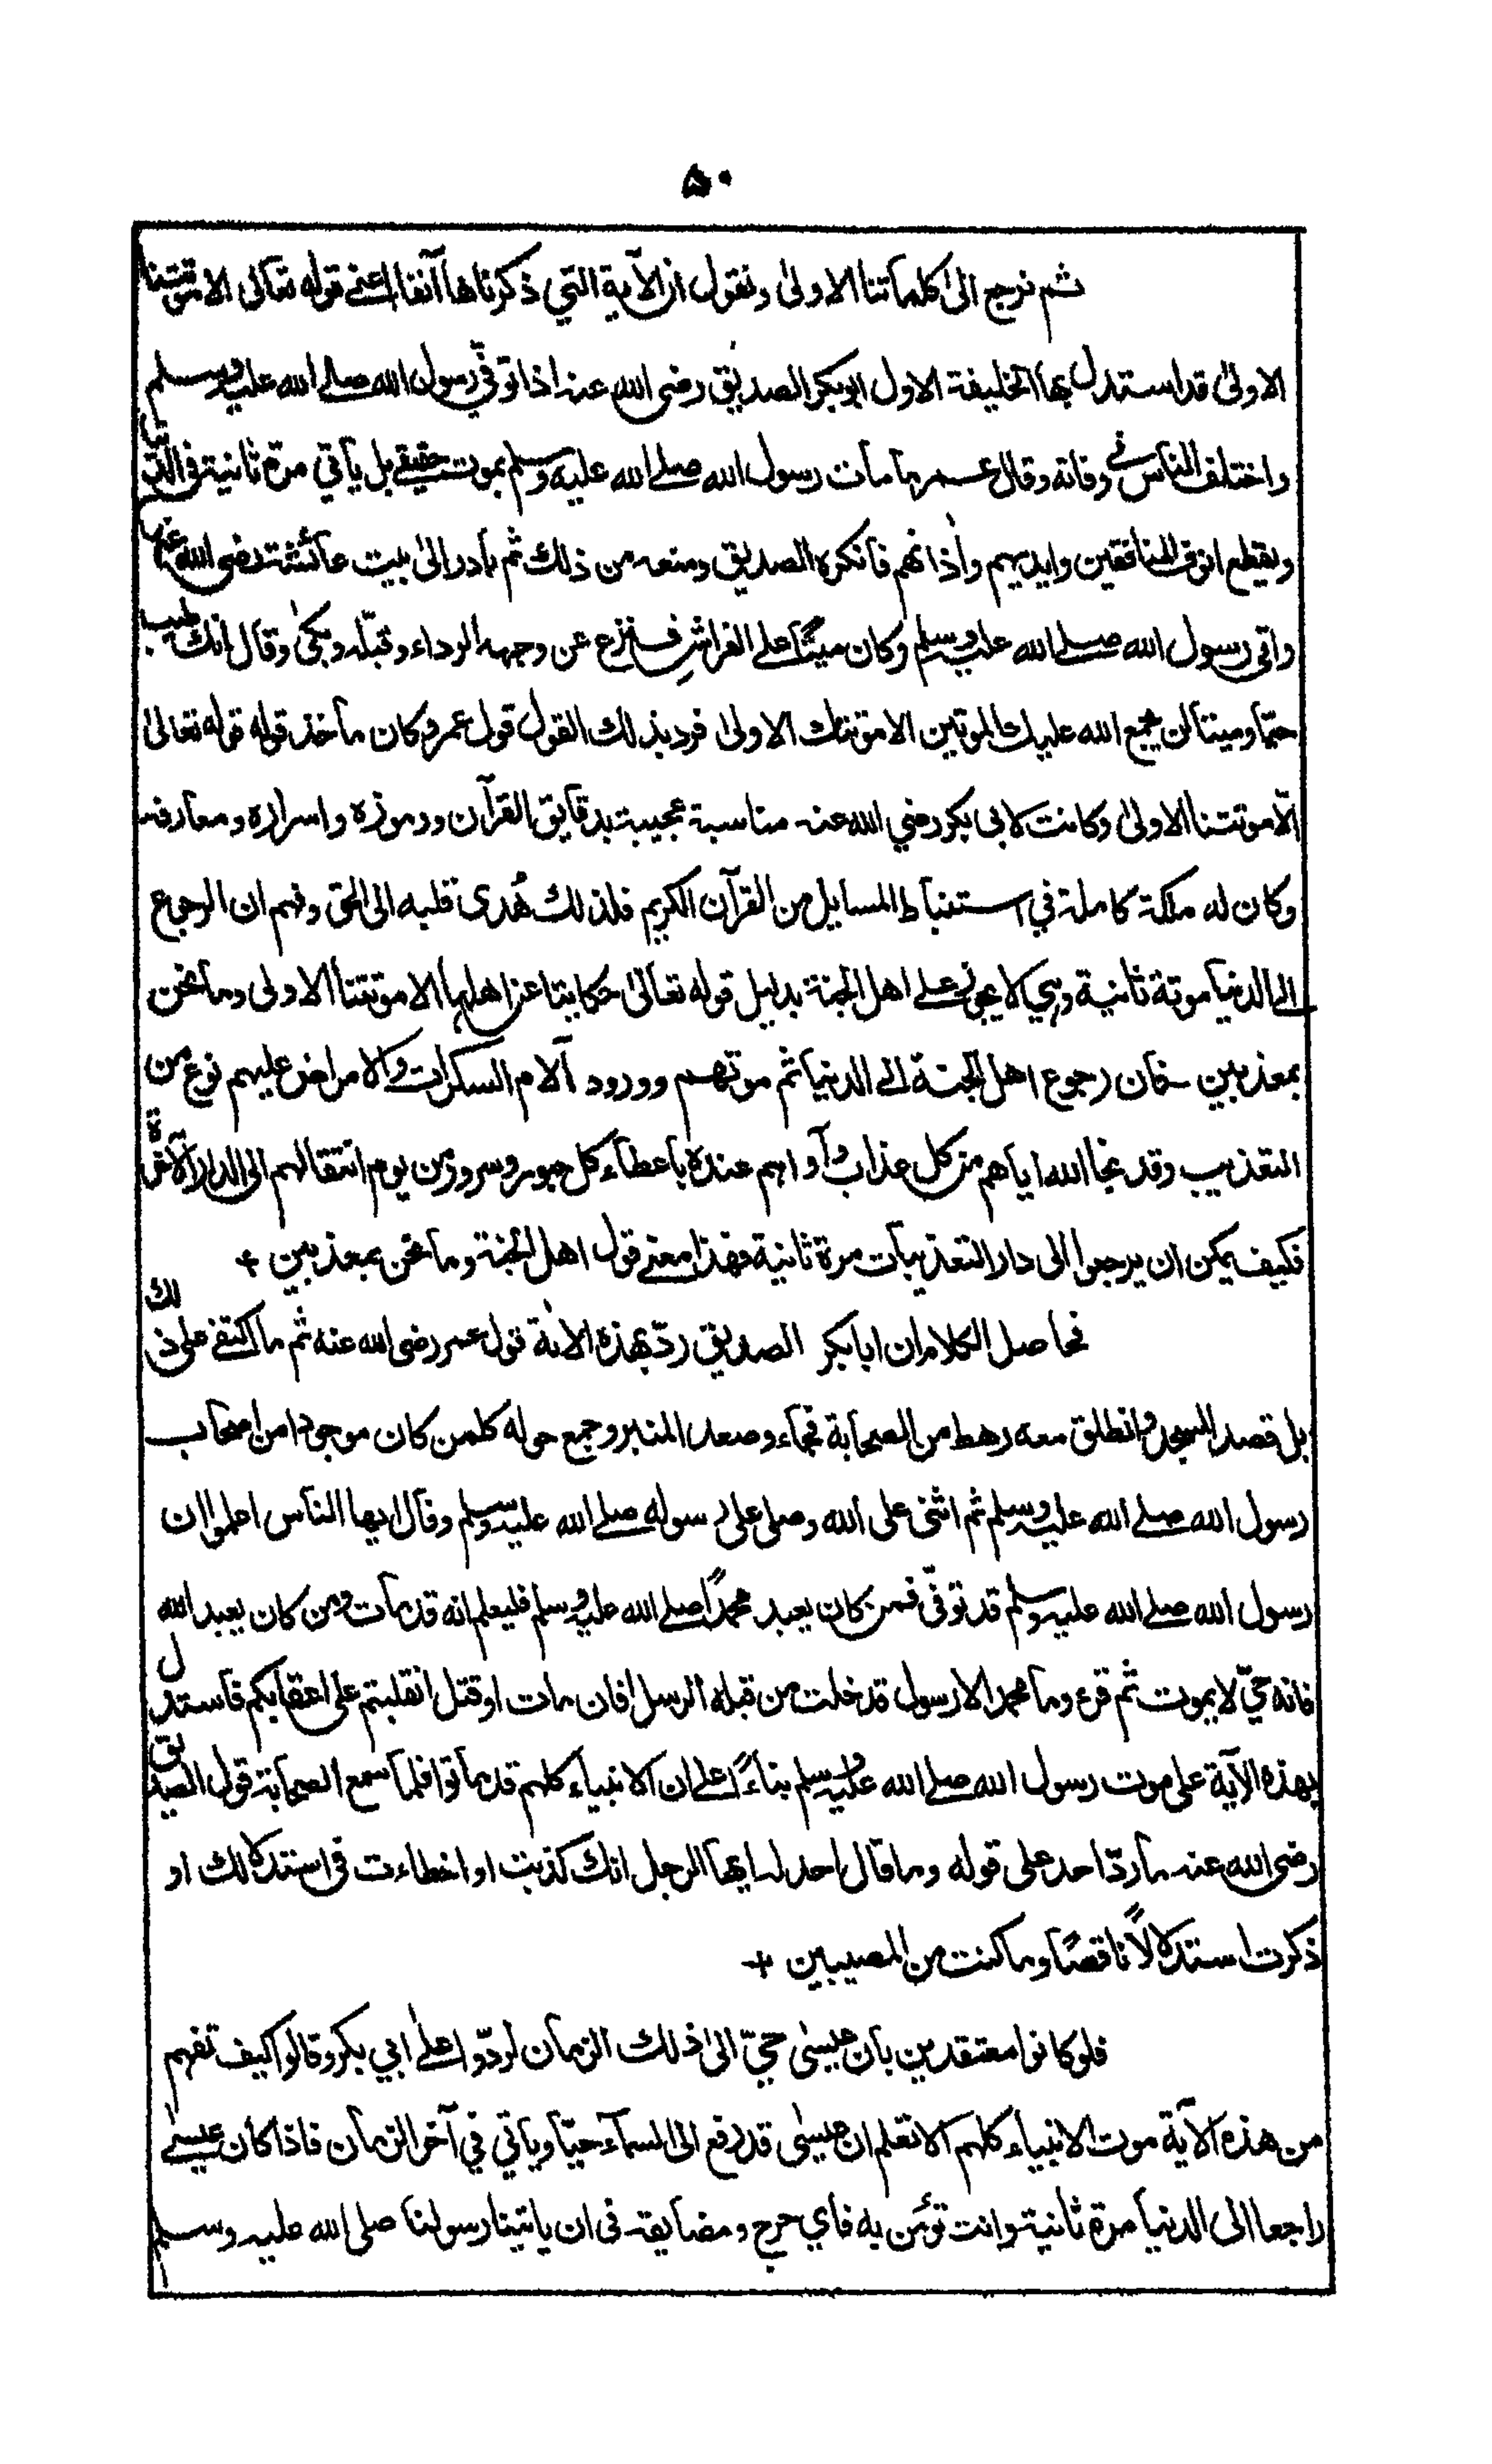 ۵۰
ثم نرجع الى كلماتنا الاولىٰ ونقول ان الآية التي ذكرناها آنفا اعنے قوله تعالى الا موتتنا
الاولىٰ قد استدل بها الخليفة الاول ابوبكر الصديق رضى الله عنه اذا توفّي رسول الله صلے الله عليه وسلم
واختلف الناس فے وفاته وقال عمر ما مات رسول الله صلے الله عليه وسلم بموت حقيقے بل يأتي مرة ثانية فى الدنيا
ويقطع انوف المنافقين وايديهم واٰذانهم فانكره الصديق ومنعه من ذلك ثم بادر الىٰ بيت عائشة رضى الله عنها
واتى رسول الله صلے الله عليه وسلم وكان ميّتًا على الفراش فنزع عن وجهه الرداء وقبّله وبكىٰ وقال انك طيب
حيًّا وميتا لن يجمع الله عليك الموتين الا موتتك الاولىٰ فرد بذلك القول قول عمر وكان مأخذ قوله قوله تعالىٰ
الّا موتتنا الاولىٰ وكانت لابى بكر رضي الله عنه مناسبة عجيبة بدقايق القرآن ورموزه واسراره ومعارفه
وكان له ملكة كاملة في استنباط المسايل من القرآن الكريم فلذلك هُدى قلبه الى الحق وفهم ان الرجوع
الے الدنيا موتة ثانية وهي لا يجوز علے اهل الجنة بدليل قوله تعالىٰ حكايتا عن اهلها الا موتتنا الاولى وما نحن
بمعذبين فان رجوع اهل الجنة الے الدنيا ثم موتهم وورود آلام السكرات والامراض عليهم نوع من
التعذيب وقد نجا الله اياهم من كل عذاب وآواهم عنده باعطاء كل حبور وسرور من يوم انتقالهم الى الدار الآخرة
فكيف يمكن ان يرجعوا الى دار التعذيبات مرة ثانية فهذا معنے قول اهل الجنة وما نحن بمعذبين +
فحاصل الكلام ان ابابكر الصديق ردّ بهذه الاٰية قول عمر رضى الله عنه ثم ما اكتفے على ذلك
بل قصد المسجد وانطلق معه رهط من الصحابة فجاء وصعد المنبر وجمع حوله كلمن كان موجودا من اصحاب
رسول الله صلے الله عليه وسلم ثم اثنى على الله وصلى على رسوله صلے الله عليه وسلم وقال ايها الناس اعلموا ان
رسول الله صلے الله عليه وسلم قد توفّى فمن كان يعبد محمدًا صلے الله عليه وسلم فليعلم انه قد مات ومن كان يعبد الله
فانه حيّ لا يموت ثم قرء وما محمد الا رسول قد خلت من قبله الرسل افان مات او قتل انقلبتم على اعقابكم فاستدل
بهذه الآية على موت رسول الله صلے الله عليه وسلم بناءً اعلے ان الانبياء كلهم قد ماتوا فلما سمع الصحابة قول الصديق
رضى الله عنه ما ردّ احد على قوله وما قال احد له ايها الرجل انك كذبت او اخطاءت فى استدلالك او
ذكرت استدلالًا ناقصًا وما كنت من المصيبين +
فلو كانوا معتقدين بان عيسىٰ حيّ الىٰ ذلك الزمان لردّوا علےٰ ابي بكر وقالوا كيف تفهم
من هذه الآية موت الانبياء كلهم الا تعلم ان عيسىٰ قد رفع الى السمآء حيّا ويأتي في آخر الزمان فاذا كان عيسےٰ
راجعا الى الدنيا مرة ثانية وانت تؤمن به فاي حرج ومضايقة فى ان ياتينا رسولنا صلى الله عليه وسلم